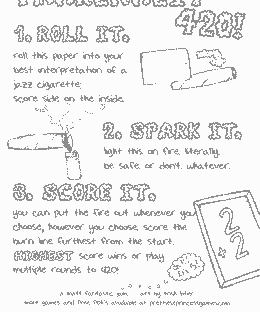 420!
1. ROLL IT.
roll this paper into your
best interpretation of a
jazz cigarette;
score side on the inside.
2. SPARK IT.
light this on fire. literally.
be safe or don't. whatever.
3. SCORE IT.
you can put the fire out whenever you
choose, however you choose. score the
burn line furthest from the start.
HIGHEST score wins or play
multiple rounds to 420!
2
2
a most fantastic game art by
more games and free pdfs available at